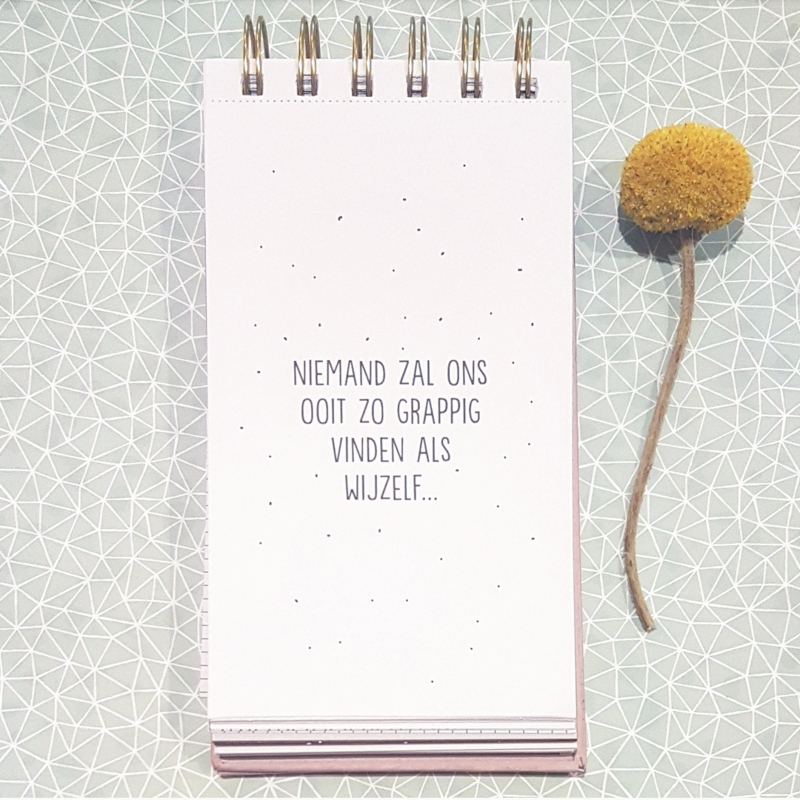 NIEMAND ZAL ONS
OOIT ZO GRAPPIG
VINDEN ALS
WIJZELF...